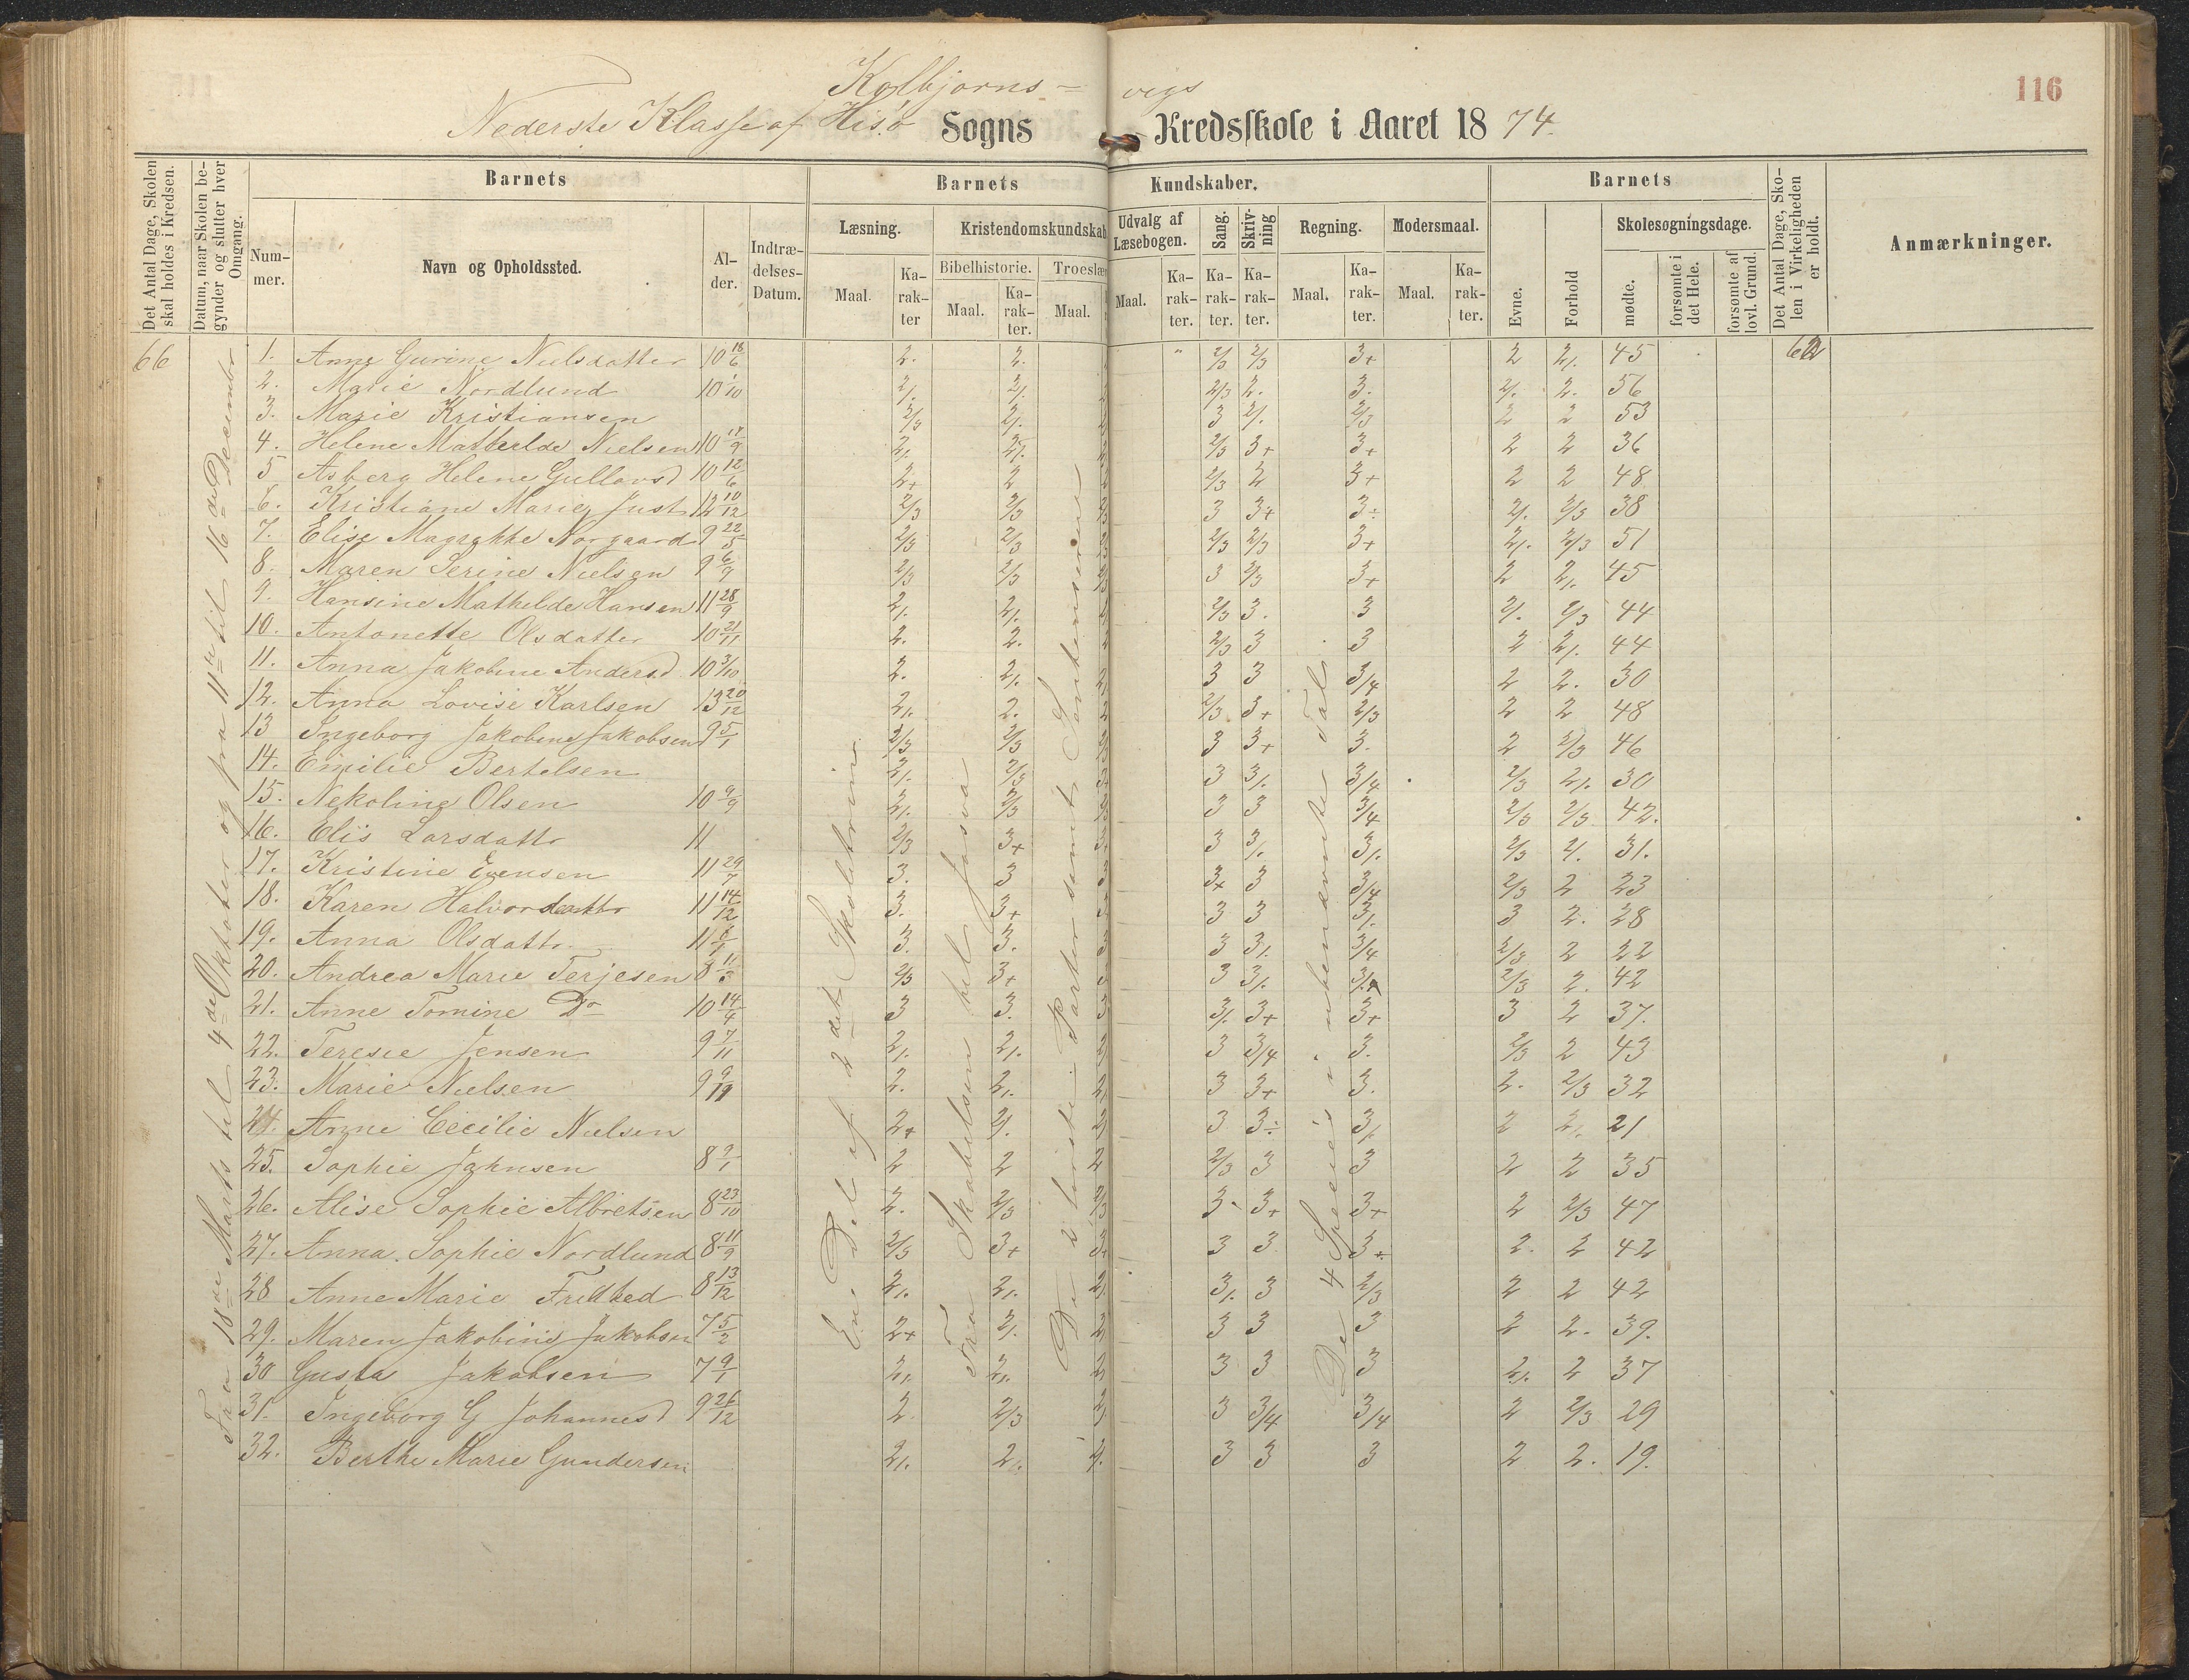 116
Kolbjørns = vigs
Nederste Klasse af Hisø Sogns Kredsskole i Aaret 1874.
Det Antal Dage, Skolen skal holdes i Kredsen.
Datum, naar Skolen begynder og slutter hver Omgang.
Barnets
Barnets Kundskaber.
Barnets
Det Antal Dage, Skolen i Virkeligheden er holdt.
Anmærkninger.
Nummer.
Navn og Opholdssted.
Alder.
Indtrædelses-Datum.
Læsning.
Kristendomskundskab
Udvalg af Læsebogen.
Sang.
Skrivning
Regning.
Modersmaal.
Evne.
Forhold
Skolesøgningsdage.
Bibelhistorie.
Troeslær
Maal.
Karakter
Maal.
Karakter.
Maal.
Maal.
Karakter.
Karakter.
Karakter.
Maal.
Karakter.
Maal.
Karakter.
mødte.
forsømte i det Hele.
forsømte af lovl. Grund.
66
Fra 18de Marts til 4de Oktober og fra 11te til 16de December
En Del af 2det Skoletrin
Fra Skabelsen til Josva
De 2 første Parter samt Sententserne
De 4 Species i ubenævnte Tal
1. Anne Gurine Nielsdatter 10 18/6 2. 2. " 2/3 2/3 3+ 2 2/. 45 62
2. Marie Nordlund 10 1/10 2/. 2/. 2/3 2. 3. 2/. 2. 56
3. Marie Kristiansen 2/3 2/. 3 2/. 2/3 2 2 53
4. Helene Mathilde Nielsen 10 17/9 2/. 2/. 2/3 3+ 3+ 2 2 36
5 Asberg Helene Gullavsd 10 12/6 2+ 2 2/3 2 3+ 2 2 48
6. Kristiane Marie Just 12 10/12 2/3 2/3 3 3+ 3÷ 2/. 2/3 38
7. Elise Magrethe Norgaard 9 22/5 2/3 2/3 2/3 2/3 3+ 2/. 2/3 51
8. Maren Serine Nielsen 9 6/7 2/3 2/3 3 2/3 3+ 2 2/. 45
9. Hansine Mathilde Hansen 11 28/9 2/. 2/. 2/3 3. 3 2/. 2/3 44
10. Antonette Olsdatter 10 21/11 2. 2. 2/3 3 3 2 2/. 44
11. Anna Jakobine Andersd 10 3/10 2. 2/. 3 3 3/4 2 2. 30
12. Anna Lovise Karlsen 13 20/12 2/. 2. 2/3 3+ 2/3 2 2 48
13 Ingeborg Jakobine Jakobsen 9 5/1 2/3 2/3 3 3+ 3. 2 2/3 46
14. Emilie Bertelsen 2/. 2/3 3 3/. 3/4 2/3 2/. 30
15. Nekoline Olsen 10 9/9 2/. 2/3 3 3 3/4 2/3 2/3 42.
16. Elis Larsdattr 11 2/3 3+ 3 3/. 3/. 2/3 2/. 31.
17. Kristine Evensen 11 29/7 3. 3 3+ 3 3/4 2/3 2 23
18. Karen Halvordattr 11 14/12 3. 3+ 3 3 3/. 3 2. 28
19. Anna Olsdattr. 11 3. 3. 3 3/. 3/4 2/3 2 22
20. Andrea Marie Terjesen 8 11/3 2/3 3+ 3 3/. 3/. 2/3 2. 42
21. Anne Tomine Do 10 14/4 3 3. 3/. 3+ 3+ 3 2 37.
22. Teresie Jensen 9 7/11 2/. 2/. 3 3/4 3. 2/3 2 43
23. Marie Nielsen 9 9/11 2. 2/. 3 3+ 3. 2. 2/3 32
24. Anne Cecilie Nielsen 2+ 2/. 3 3÷ 3/. 2 2/. 21
25. Sophie Johnsen 8 9/1 2 2 2/3 3 3 2 2 35
26. Alise Sophie Albretsen 8 23/10 2. 2/3 3 3+ 3+ 2 2/3 47
27. Anna Sophie Nordlund 8 11/9 2/3 3+ 3 3 3+ 2. 2 42
28 Anne Marie Fredhed 8 13/12 2/. 2/. 3/. 3 2/3 2 2 42
29. Maren Jakobine Jakobsen 7 5/2 2+ 2/. 3 3 3 2 2. 39.
30 Gusta Jakobsen 7 9/1 2/. 2/. 3 3 3 2/. 2 37
31. Ingeborg G Johannesd 9 26/12 2. 2/3 3 3/4 3/4 2 2/3 29
32. Berthe Marie Gundersen 2/. 2/. 3 3 3 2 2. 19.